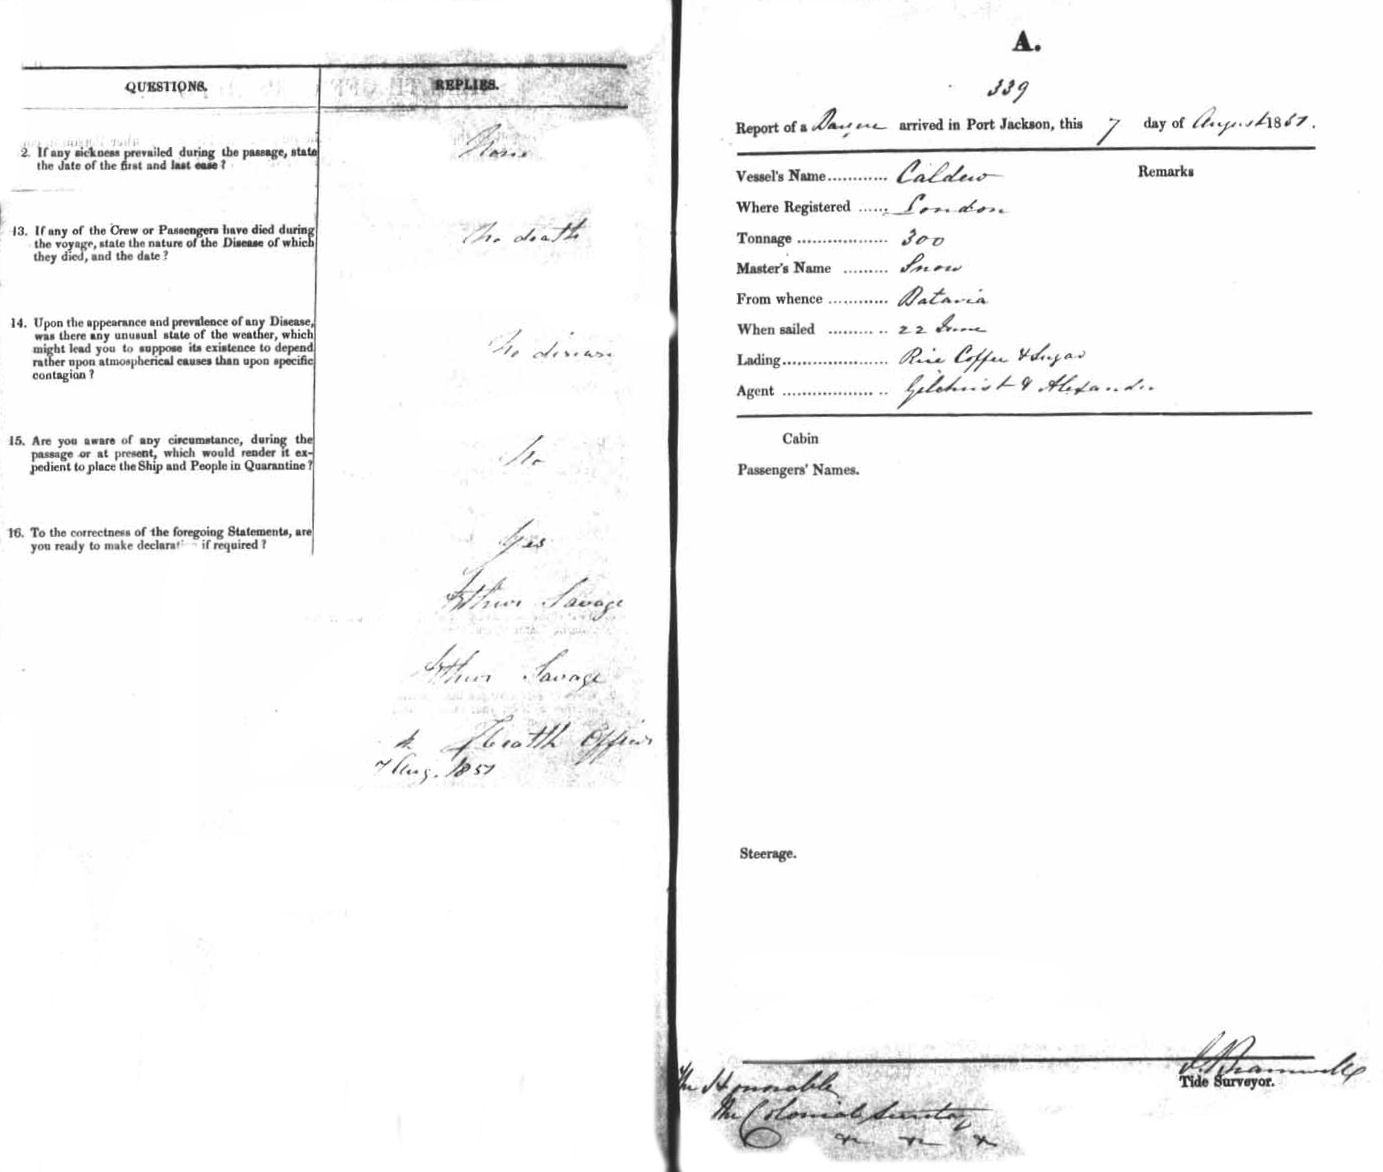 QUESTIONS.
REPLIES.
2. If any sickness prevailed during the passage, state
the date of the first and last case?
None
13. If any of the Crew or Passengers have died during
the voyage, state the nature of the Disease of which
they died, and the date?
No death
14. Upon the appearance and prevalence of any Disease,
was there any unusual state of the weather, which
might lead you to suppose its existence to depend
rather upon atmospherical causes than upon specific
contagion?
No disease
15. Are you aware of any circumstance, during the
passage or at present, which would render it ex-
pedient to place the Ship and People in Quarantine?
No
16. To the correctness of the foregoing Statements, are
you ready to make declarat if required?
Yes
Arthur Savage
Arthur Savage
Health Officer
7 Aug. 1851
A.
339
Report of a Barque arrived in Port Jackson, this 7 day of August 1851.
Vessel's Name............ Caldew
Remarks
Where Registered ...... London
Tonnage .................. 300
Master's Name ......... Snow
From whence ............ Batavia
When sailed .......... .. 22 June
Lading..................... Rice Coffee & Sugar
Agent .................. .. Gilchrist & Alexander
Cabin
Passengers' Names.
Steerage.
Bramwell
Tide Surveyor.
The Honorable
The Colonial Secretary